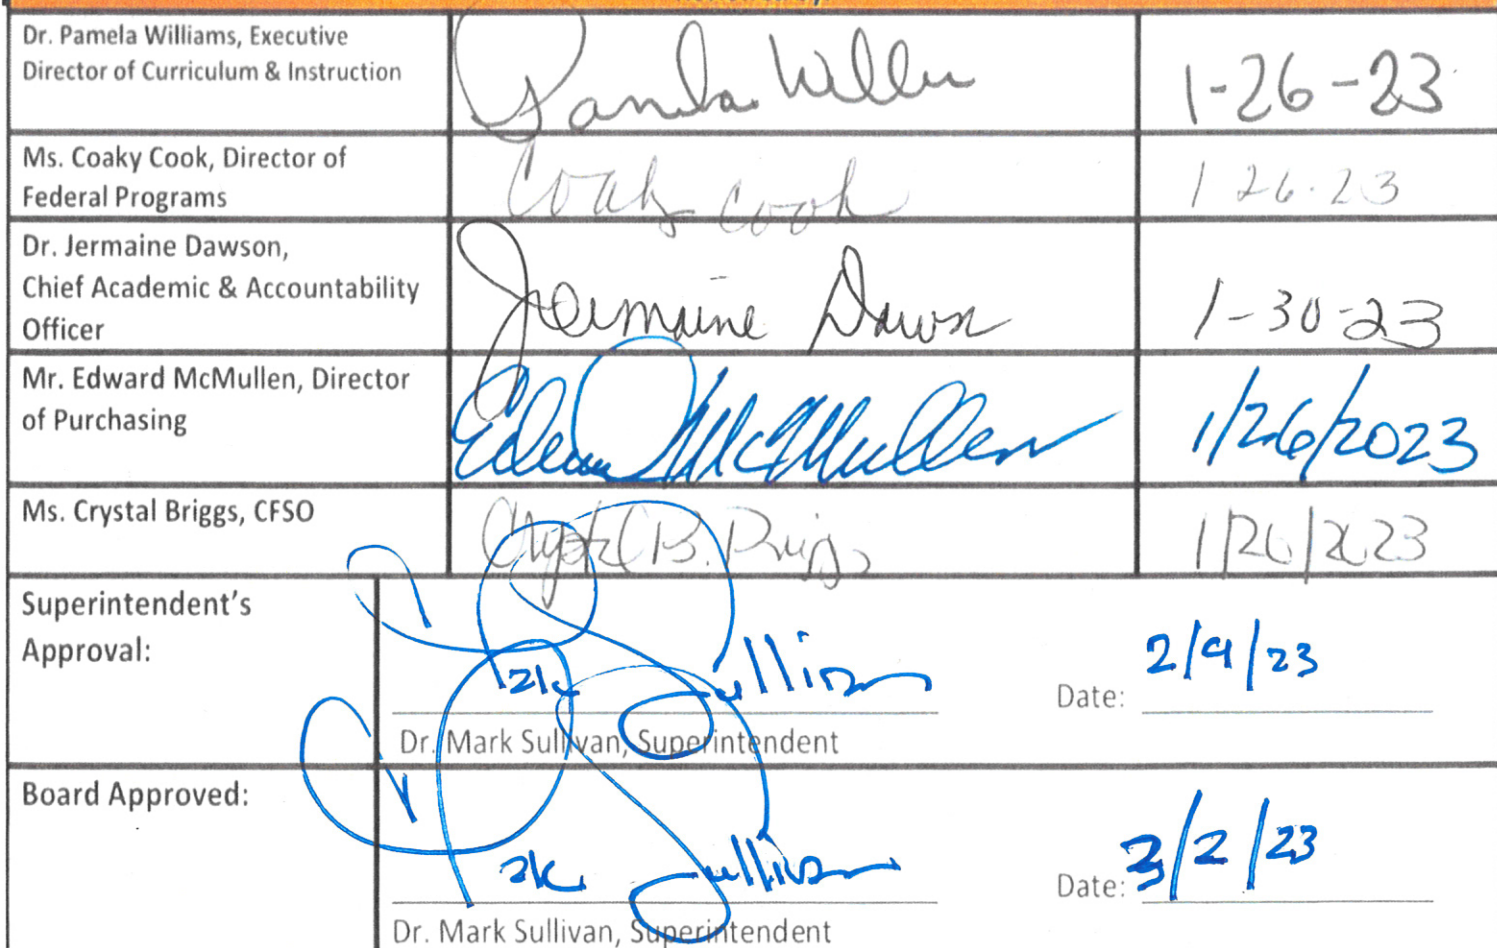 Dr. Pamela Williams, Executive
Director of Curriculum & Instruction
Pamela Willia
1-26-23
Ms. Coaky Cook, Director of
Federal Programs
Coaky Cook
1 26-23
Dr. Jermaine Dawson,
Chief Academic & Accountability
Officer
Jermaine Dawson
1-30-23
Mr. Edward McMullen, Director
of Purchasing
Edward McMullen
1/26/2023
Ms. Crystal Briggs, CFSO
Crystal B. Briggs
1/26/2023
Superintendent's
Approval:
Sullivan
Date: 2/9/23
Dr. Mark Sullivan, Superintendent
Board Approved:
Sullivan
Date: 3/2/23
Dr. Mark Sullivan, Superintendent